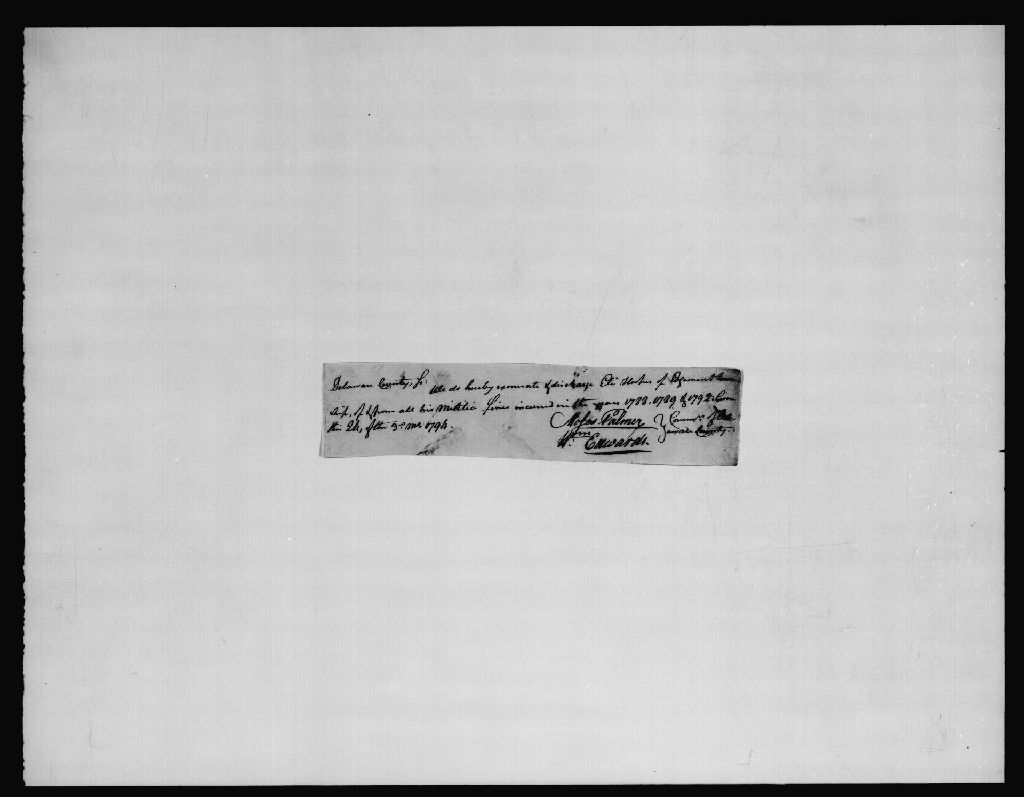 Delaware County, Ss. We do hereby exonerate & discharge of
ship, of & from all his Militia fines incurred in the years 1788. 1789 & 1792.
the 24, of the 3d mo 1794.
Moses Palmer } Commrs of Dela
Wm Edwards. } ware County.